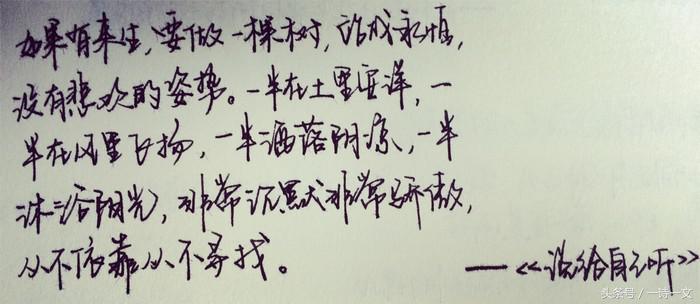 如果有来生,要做一棵树,站成永恒,
没有悲欢的姿势。一半在土里安洋,一
半在风里飞扬,一半洒落阴凉,一半
沐浴阳光,非常沉默非常骄傲,
从不依靠从不寻找。
——<<说给自己听>>
头条号/一诗一文